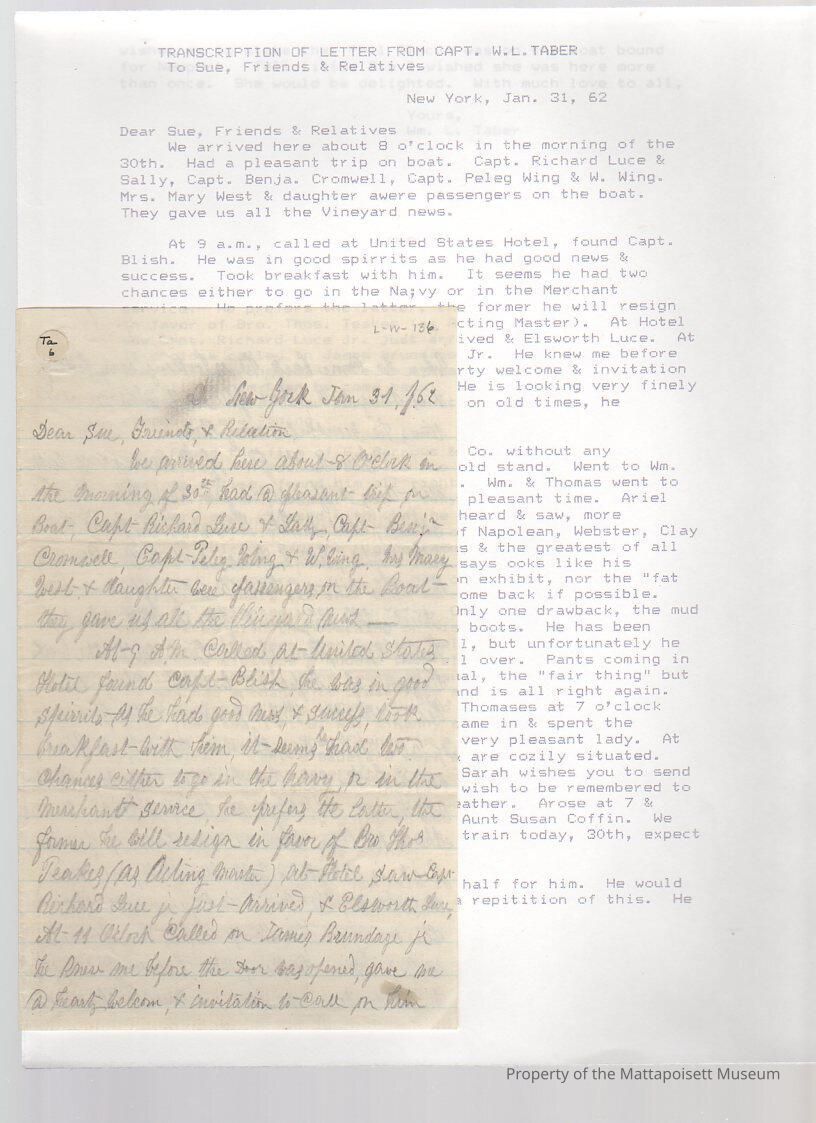 TRANSCRIPTION OF LETTER FROM CAPT. W.L.TABER
To Sue, Friends & Relatives
New York, Jan. 31, 62
Dear Sue, Friends & Relatives
We arrived here about 8 o'clock in the morning of the
30th. Had a pleasant trip on boat. Capt. Richard Luce &
Sally, Capt. Benja. Cromwell, Capt. Peleg Wing & W. Wing.
Mrs. Mary West & daughter awere passengers on the boat.
They gave us all the Vineyard news.
At 9 a.m., called at United States Hotel, found Capt.
Blish. He was in good spirrits as he had good news &
success. Took breakfast with him. It seems he had two
chances either to go in the Na;vy or in the Merchant
the former he will resign
cting Master). At Hotel
ived & Elsworth Luce. At
Jr. He knew me before
rty welcome & invitation
He is looking very finely
on old times, he
Co. without any
old stand. Went to Wm.
. Wm. & Thomas went to
pleasant time. Ariel
heard & saw, more
f Napolean, Webster, Clay
s & the greatest of all
says ooks like his
on exhibit, nor the "fat
ome back if possible.
Only one drawback, the mud
boots. He has been
l, but unfortunately he
l over. Pants coming in
al, the "fair thing" but
and is all right again.
Thomases at 7 o'clock
ame in & spent the
very pleasant lady. At
& are cozily situated.
Sarah wishes you to send
wish to be remembered to
eather. Arose at 7 &
Aunt Susan Coffin. We
train today, 30th, expect
half for him. He would
a repitition of this. He
Ta
6
L-W-136
New York Jan 31, /62
Dear Sue, Friends, & Relation
We arrived here about 8 OClock in
the morning of 30th had a pleasant trip on
Boat, Capt Richard Luce & Sally, Capt Benja
Cromwell, Capt Peleg Wing & W. Wing, Mrs Mary
West & daughter were passengers on the Boat
they gave us all the Vineyard news
At 9 A.M. Called at United States
Hotel found Capt Blish, he was in good
spirrits as he had good news & success, took
breakfast with him, it seems he had two
chances either to go in the navy, or in the
Merchant service, he prefers the latter, the
former he will resign in favor of Bro Thos
(as Acting Master) at Hotel saw Capt
Richard Luce jr just arrived, & Elsworth Luce,
At 11 OClock Called on James Brundage jr
he knew me before the door was opened, gave me
a hearty welcom, & invitation to call on him
Property of the Mattapoisett Museum